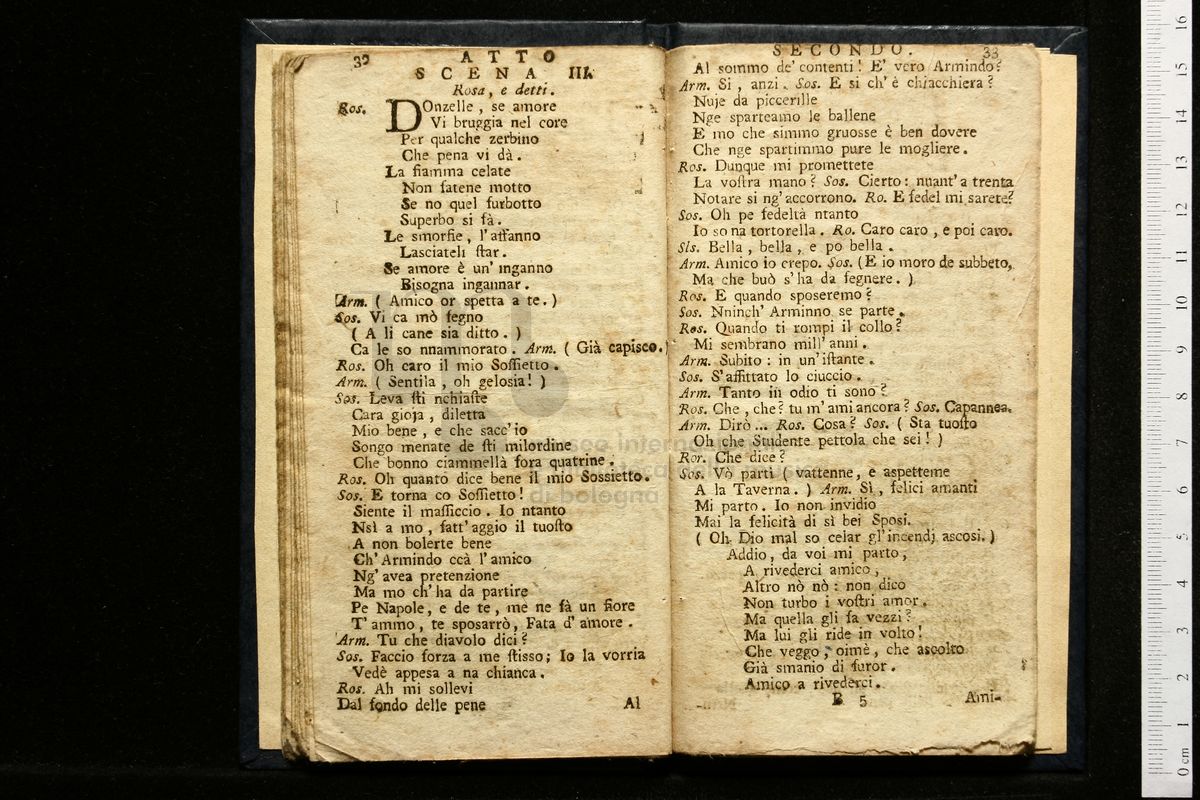 32
ATTO
SCENA III.
Rosa, e detti.
Ros. DOnzelle, se amore
Vi bruggia nel core
Per qualche zerbino
Che pena vi dà.
La fiamma celate
Non fatene motto
Se no quel furbotto
Superbo si fà.
Le smorfie, l'affanno
Lasciateli star.
Se amore è un' inganno
Bisogna ingannar.
Arm. ( Amico or spetta a te. )
Sos. Vi ca mò fegno
( A li cane sia ditto. )
Ca le so nnammorato. Arm. ( Già capisco. )
Ros. Oh caro il mio Sossietto.
Arm. ( Sentila, oh gelosia! )
Sos. Leva sti nchiaste
Cara gioja, diletta
Mio bene, e che sacc'io
Songo menate de sti milordine
Che bonno ciammellà fora quatrine.
Ros. Oh quanto dice bene il mio Sossietto.
Sos. E torna co Sossietto!
Siente il massiccio. Io ntanto
Nsì a mo, fatt'aggio il tuosto
A non bolerte bene
Ch'Armindo ccà l'amico
Ng'avea pretenzione
Ma mo ch'ha da partire
Pe Napole, e de te, me ne fà un fiore
T'ammo, te sposarrò, Fata d'amore.
Arm. Tu che diavolo dici?
Sos. Faccio forza a me stisso; Io la vorria
Vedè appesa a na chianca.
Ros. Ah mi sollevi
Dal fondo delle pene
Al
SECONDO.
33
Al sommo de' contenti! E' vero Armindo?
Arm. Si, anzi. Sos. E si ch'è chiacchiera?
Nuje da piccerille
Nge sparteamo le ballene
E mo che simmo gruosse è ben dovere
Che nge spartimmo pure le mogliere.
Ros. Dunque mi promettete
La vostra mano? Sos. Cierto: nuant'a trenta
Notare si ng'accorrono. Ro. E fedel mi sarete?
Sos. Oh pe fedeltà ntanto
Io so na tortorella. Ro. Caro caro, e poi caro.
Sls. Bella, bella, e po bella.
Arm. Amico io crepo. Sos. (E io moro de subbeto,
Ma che buò s'ha da fegnere. )
Ros. E quando sposeremo?
Sos. Nninch' Arminno se parte.
Ros. Quando ti rompi il collo?
Mi sembrano mill'anni.
Arm. Subito: in un'istante.
Sos. S'affittato lo ciuccio.
Arm. Tanto in odio ti sono?
Ros. Che, che? tu m'ami ancora? Sos. Capannea.
Arm. Dirò ... Ros. Cosa? Sos. ( Sta tuosto
Oh che Studente pettola che sei! )
Ror. Che dice?
Sos. Vò parti ( vattenne, e aspetteme
A la Taverna. ) Arm. Sì, felici amanti
Mi parto. Io non invidio
Mai la felicità di sì bei Sposi.
( Oh Dio mal so celar gl'incendj ascosi. )
Addio, da voi mi parto,
A rivederci amico,
Altro nò nò: non dico
Non turbo i vostri amor.
Ma quella gli fa vezzi?
Ma lui gli ride in volto!
Che veggo, oimè, che ascolto
Già smanio di furor.
Amico a rivederci.
B 5
Ami-